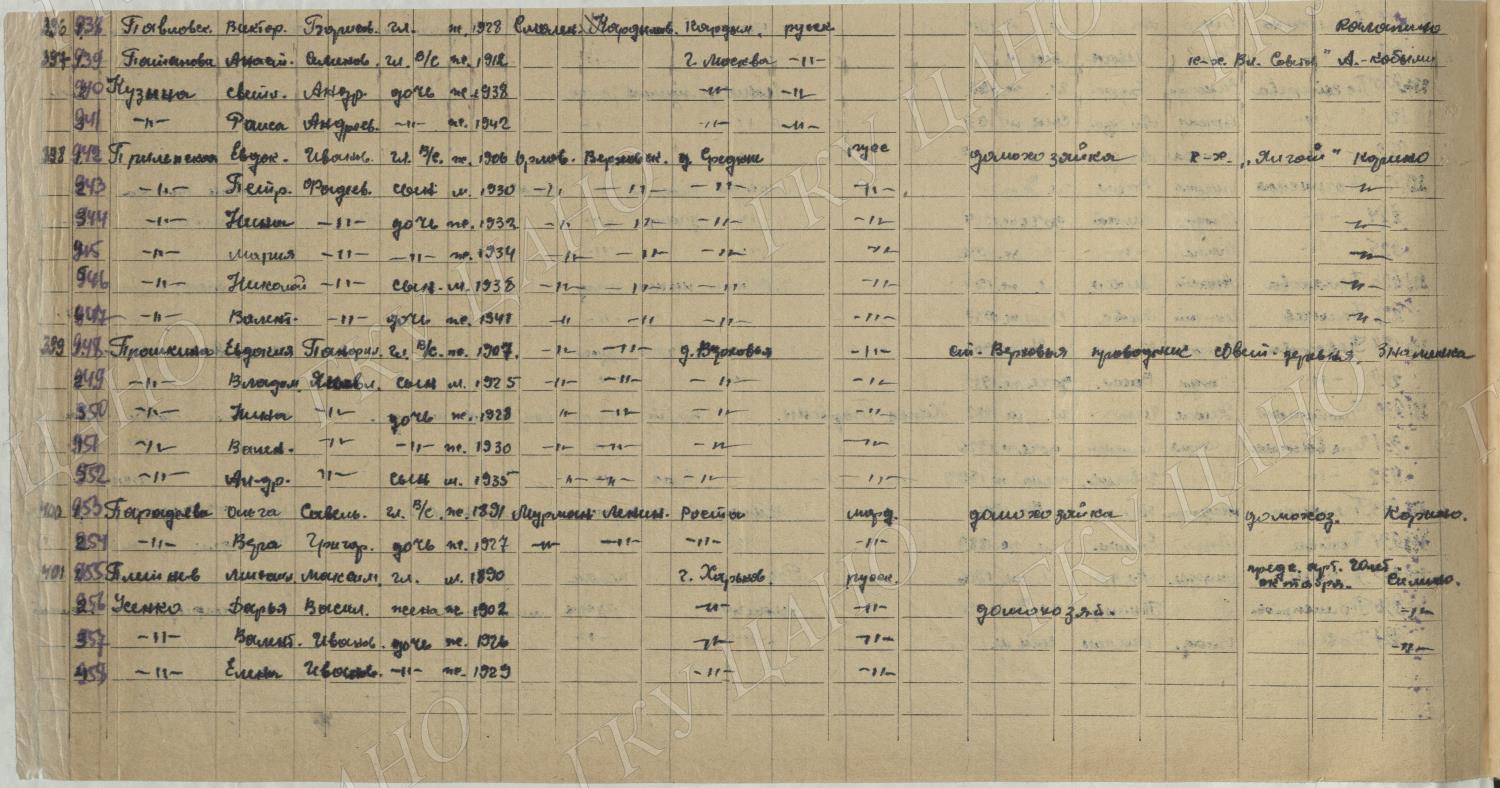 396 938 Павловск. Виктор. Борисов. гл. м. 1928 Смолен. Кардымов. Кардым. русск Романино
397 939 Паганова Анаст. Семенов. гл. В/С ж. 1912 г. Москва -"- к-х. Вл. Советов" А.-Кобыли
940 Кузьина свет. Андр. дочь ж. 1938 -"- -"-
941 -"- Раиса Андреев. -"- ж. 1942 -"- -"-
398 942 Евдок. Иванов. гл. В/С. ж. 1906 Орлов. Верховск. д. Средние русс домохозяйка к-х. Корино
943 -"- Петр. Фадеев. сын м. 1930 -"- -"- -"- -"- -"-
944 -"- Нина -"- дочь ж. 1932 -"- -"- -"- -"- -"-
945 -"- Мария -"- -"- ж. 1934 -"- -"- -"- -"- -"-
946 -"- Николай -"- сын. м. 1938 -"- -"- -"- -"- -"-
947 -"- Валент. -"- дочь ж. 1941 -"- -"- -"- -"- -"-
399 948 Прошкина Евдокия гл. В/С. ж. 1907. -"- -"- д. Верховья -"- ст. Верховья проводник совет. деревья. Знаменка
949 -"- Владим. сын м. 1925 -"- -"- -"- -"-
950 -"- Нина -"- дочь ж. 1928 -"- -"- -"- -"-
951 -"- -"- -"- ж. 1930 -"- -"- -"- -"-
952 -"- Ан-др. -"- сын м. 1935 -"- -"- -"- -"-
400 953 Парадеева Ольга Савель. гл. В/С. ж. 1891 Мурман Ленин. Роста морд. домохозяйка домохоз. Корино.
954 -"- Вера Григор. дочь ж. 1927 -"- -"- -"- -"-
401 955 Михаил. Максим. гл. м. 1890 г. Харьков русск. предс. арт. 20лет октября. Силино.
956 Усенко Дарья Васил. жена ж 1902 -"- -"- домохозяй. -"-
957 -"- Валент. Иванов. дочь ж. 1926 -"- -"- -"-
958 -"- Елена Иванов. -"- ж. 1929 -"- -"-
ГКУ ЦАНО